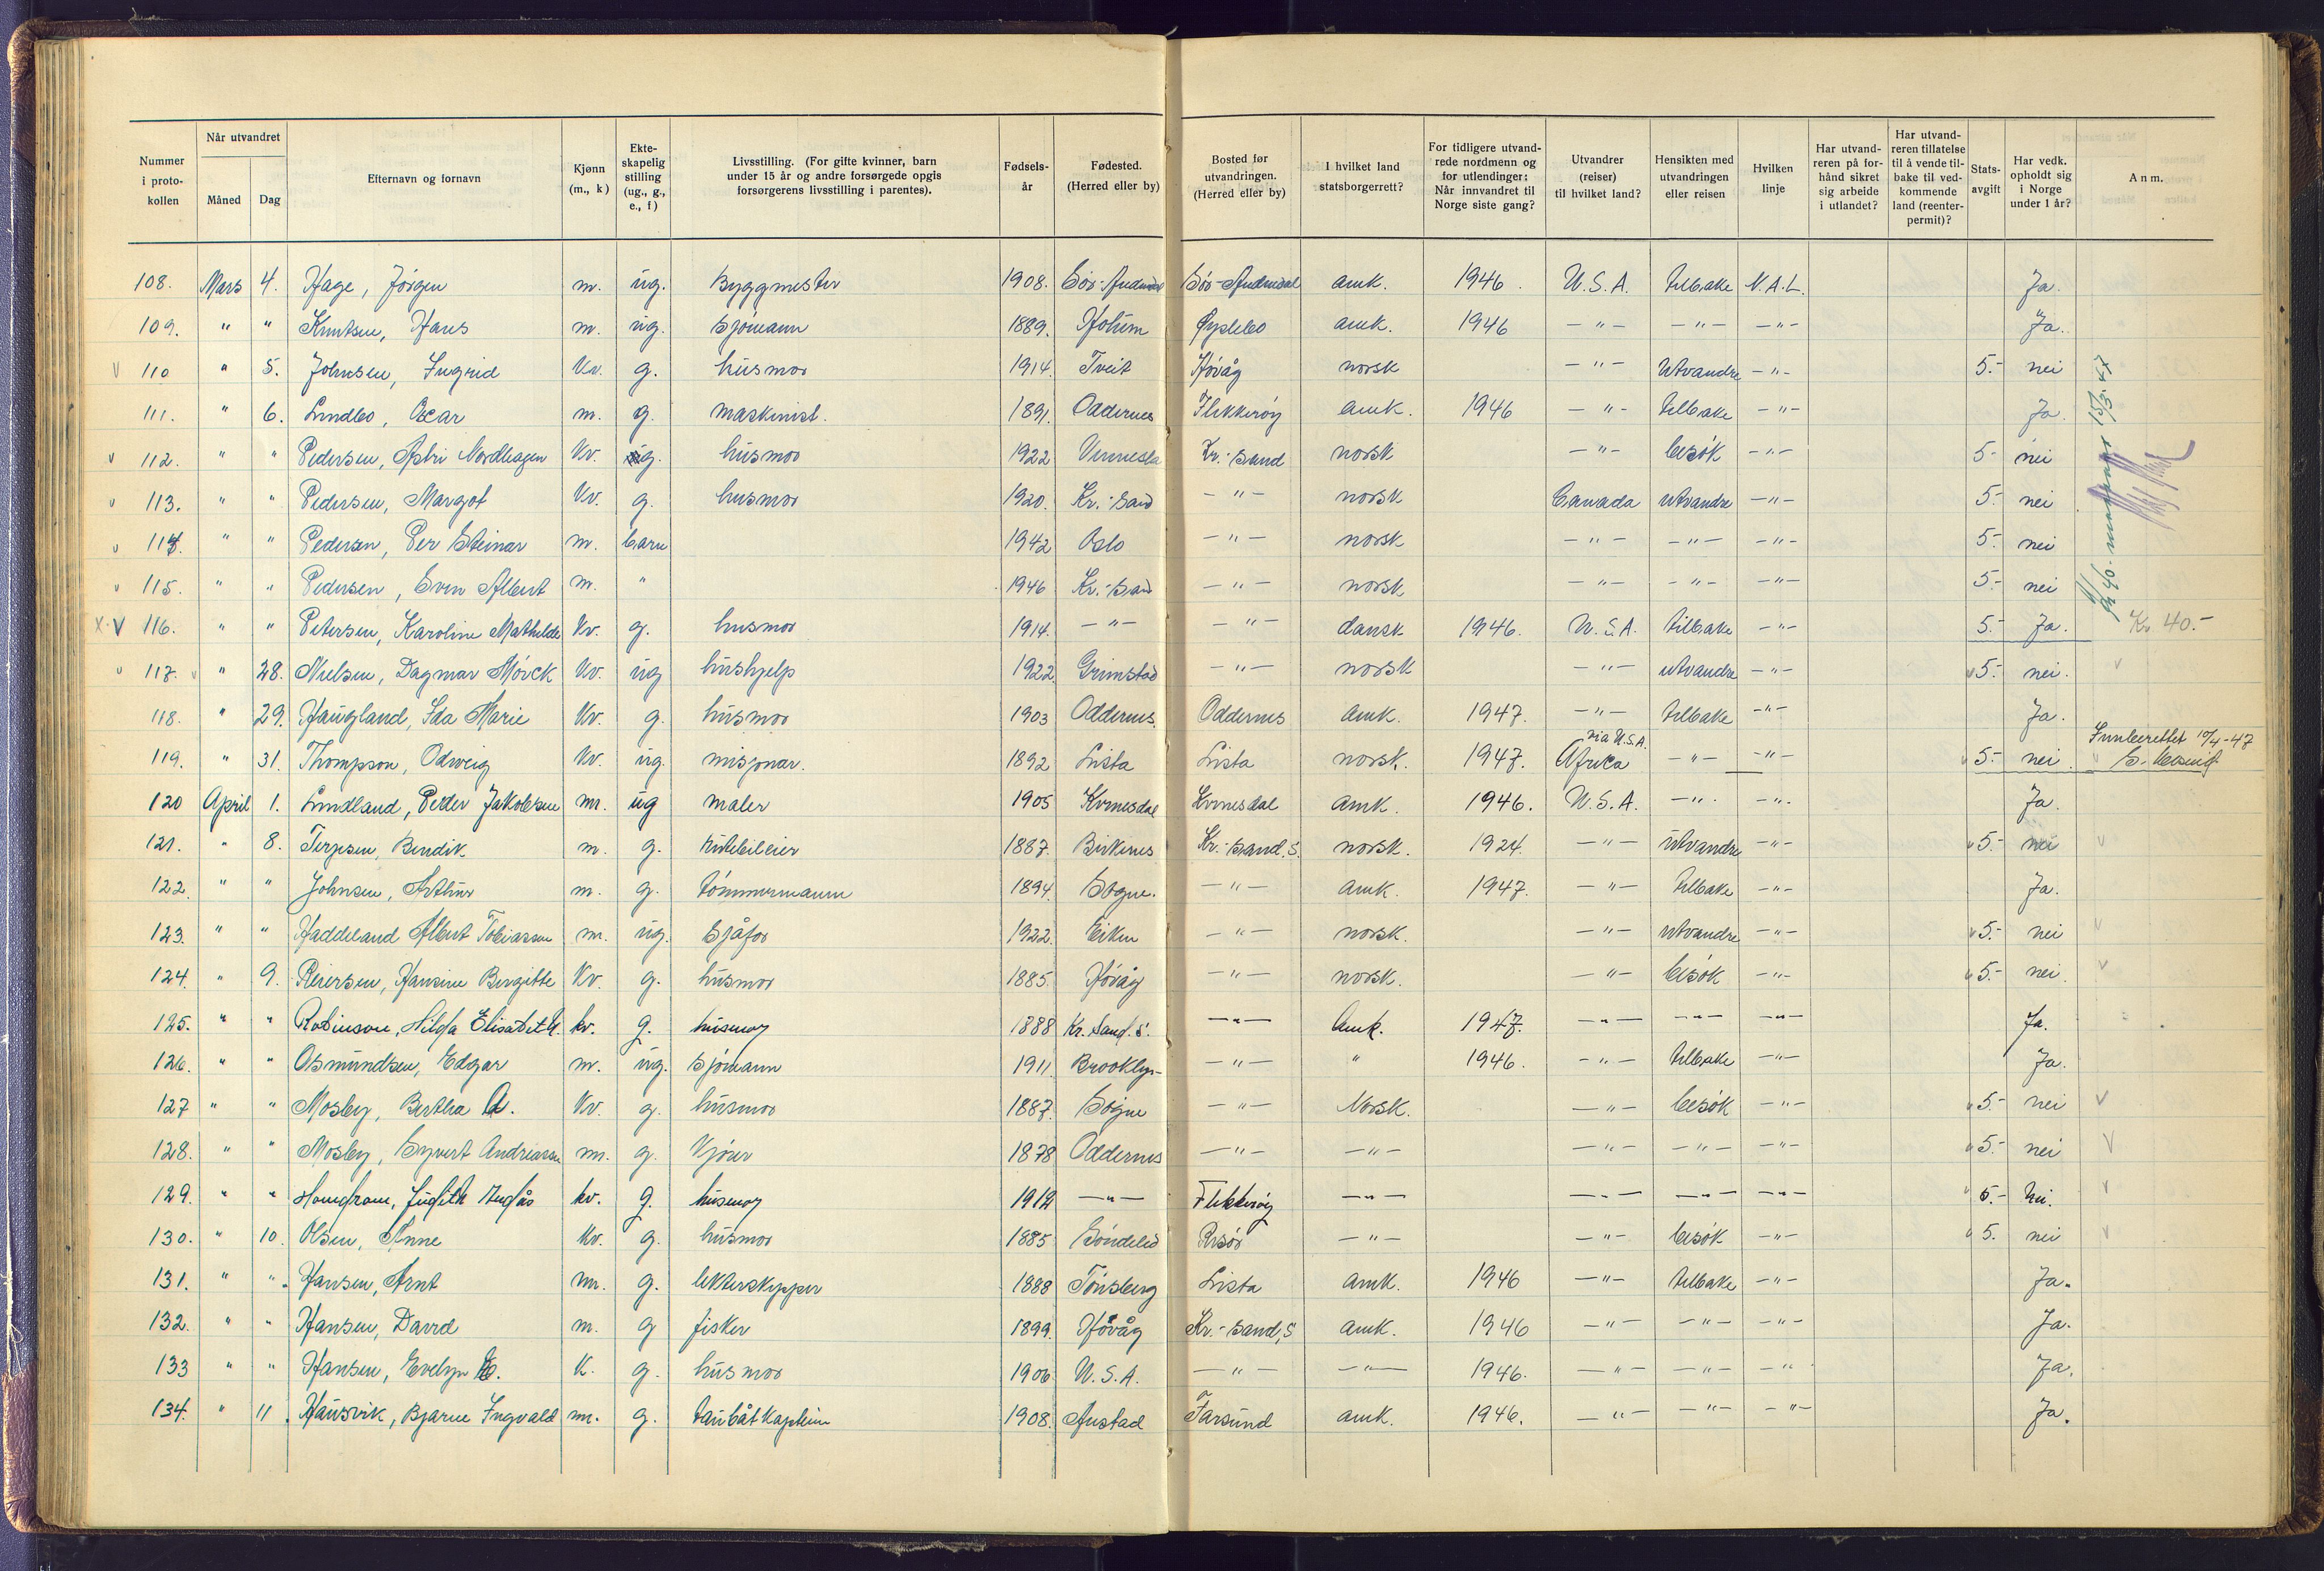 Nummer i proto-kollen | Når utvandret Måned Dag | Efternavn og fornavn | Kjønn (m., k) | Ekte-skapelig stilling (ug., g., e., f) | Livsstilling. (For gifte kvinner, barn under 15 år og andre forsørgede opgis forsørgerens livsstilling i parentes). | Fødsels-år | Fødested. (Herred eller by) | Bosted før utvandringen. (Herred eller by) | I hvilket land statsborgerrett? | For tidligere utvand-rede nordmenn og for utlendinger: Når innvandret til Norge siste gang? | Utvandrer (reiser) til hvilket land? | Hensikten med utvandringen eller reisen | Hvilken linje | Har utvand-reren på for-hånd sikret sig arbeide i utlandet? | Har utvand-reren tillatelse til å vende til-bake til ved-kommende land (reenter-permit)? | Stats-avgift | Har vedk. opholdt sig i Norge under 1 år? | Anm.
108. Mars 4. Hage, Jørgen m. ug. Byggmester 1908. Sør-Audnedal Sør-Audnedal amk. 1946 U.S.A. tilbake N.A.L. Ja.
109. " " Knutsen, Hans m. ug. sjømann 1889. Holum Øyslebø amk. 1946 -"- -"- -"- Ja.
v 110 " 5. Johnsen, Ingrid kv. g. husmor 1914. Tveit Høvåg norsk -"- utvandre -"- 5.- nei
111. " 6. Lindbo, Oscar m. g. maskinist. 1891. Oddernes Flekkerøy amk. 1946 -"- tilbake -"- Ja.
v 112. " " Pedersen, Astri Nordhagen kv. g. husmor 1922 Vennesla Kr.-sand norsk -"- besøk -"- 5- nei
v 113. " " Pedersen, Margot kv. g. husmor 1920. Kr.-sand -"- norsk Canada utvandre -"- 5- nei
v 114. " " Pedersen, Per Steinar m. barn 1942 Oslo -"- norsk -"- -"- -"- 5.- nei
v 115. " " Pedersen, Sven Albert m. " 1946 Kr.-sand -"- norsk -"- -"- -"- 5.- nei
x v 116. " " Petersen, Karoline Mathilde kv. g. husmor 1914. -"- -"- dansk 1946. U.S.A. tilbake -"- 5.- Ja. Kr 40.-
v 117. v " 28. Nielsen, Dagmar Mørck kv. ug hushjelp 1922 Grimstad -"- norsk -"- utvandre -"- v 5.- nei. v
118. " 29. Haugland, Ida Marie kv. g. husmor 1903 Oddernes. Oddernes amk. 1947. -"- tilbake -"- Ja.
119. " 31. Thompson, Odveig kv. ug. misjonær. 1892 Lista Lista norsk. 1947. via U.S.A. Afrika -"- -"- v 5.- nei. v Innberettet 10/4-47
120 April 1. Lindland, Peder Jakobsen m. ug maler 1905 Kvinesdal Kvinesdal amk. 1946. U.S.A. -"- -"- Ja.
121. " 8. Terjesen, Bendik m. g. rutebileier 1887. Birkenes Kr.-sand, S. norsk. 1924. -"- utvandre -"- v 5.- nei v
122. " " Johnsen, Arthur m. g. tømmermann 1894. Søgne. -"- amk. 1947. -"- tilbake -"- Ja.
123. " " Haddeland Albert Tobiassen m. ug. sjåfør 1922. Eiken -"- norsk. -"- utvandre -"- v 5.- nei v
124. " 9. Reiersen, Hansine Bergitte kv. g. husmor 1885. Høvåg -"- norsk. -"- besøk -"- v 5.- nei. v
125. " " Robinson, Hilda Elisabeth. kv. g. husmor 1888 Kr. Sand. S. -"- Amk. 1947. -"- -"- -"- Ja.
126. " " Osmundsen, Edgar m. ug. sjømann 1911. Brooklyn- -"- " 1946. -"- tilbake -"- Ja.
127 " " Mosby, Bertha A. kv. g. husmor 1887. Søgne -"- Norsk. -"- besøk -"- v 5.- nei v
128. " " Mosby, Syvert Andreassen m. g. kjører 1878 Oddernes -"- -"- -"- -"- -"- v 5.- nei v
129. " " kv. g. husmor 1912 -"- Flekkerøy -"- -"- -"- -"- v 5.- nei. v
130. " 10. Olsen, Anne kv. g. husmor 1885 Søndeled Risør -"- -"- besøk -"- v 5. nei v
131. " ". Hansen, Arnt m. g. lekterskipper 1888 Tønsberg Lista amk. 1946 -"- tilbake -"- Ja.
132. " " Hansen, David m. g fisker 1899. Høvåg Kr.-sand, S amk. 1946 -"- -"- -"- Ja.
133 " " Hansen, Evelyn E. K. g. husmor 1906 U.S.A. -"- -"- 1946. -"- -"- -"- Ja.
134. " 11. Hausvik, Bjarne Ingvald m. g. taubåtkaptein 1908. Austad Farsund amk. 1946. -"- -"- -"- Ja.